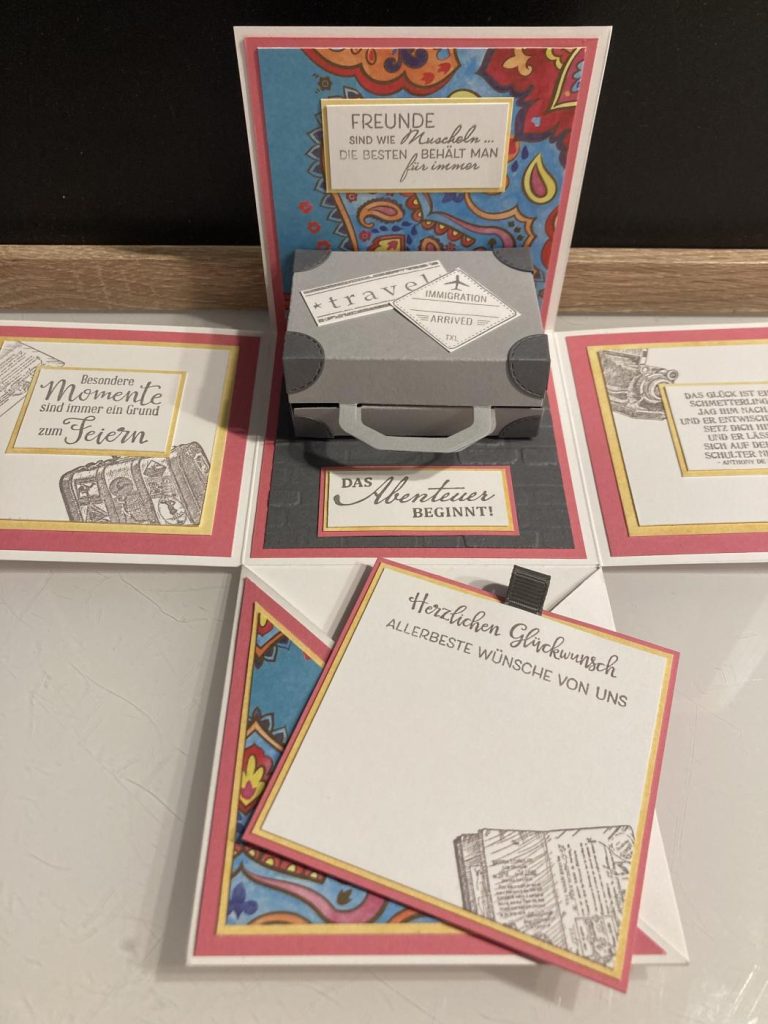 FREUNDE
SIND WIE Muscheln ...
DIE BESTEN BEHÄLT MAN
für immer
★travel
IMMIGRATION
ARRIVED
TXL
Besondere
Momente
sind immer ein Grund
zum Feiern
DAS GLÜCK IST EI
SCHMETTERLING
JAG IHM NACH
UND ER ENTWISCH
SETZ DICH HI
UND ER LÄSS
SICH AUF DE
SCHULTER NI
- ANTHONY DE
DAS Abenteuer
BEGINNT!
Herzlichen Glückwunsch
ALLERBESTE WÜNSCHE VON UNS